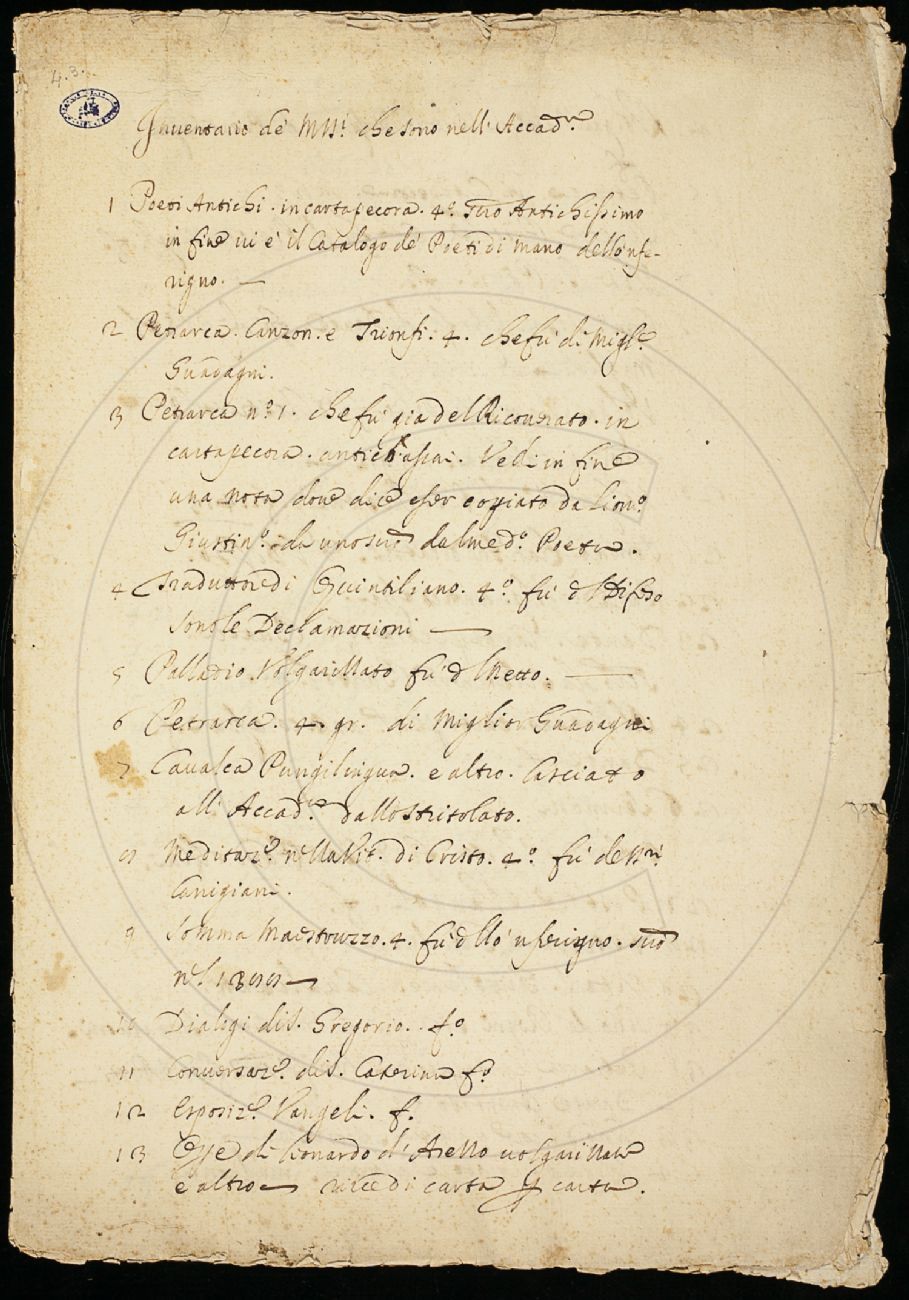 4. 3.
Inventario de' MSS.ti che sono nell' Accad.a
1 Poeti Antichi. in cartapecora. 4.o Antichissimo
in fine ui è il Catalogo de' Poeti di mano dell'Infe-
rigno. —
2 Petrarca. Canzon. e Trionfi. 4. che fù di Migl.e
Guadagni.
3 Petrarca n.o 1. che fù già del Ricourato. in
cartapecora. antich. assai. Vedi in fine
una nota doue dice esser copiato da Lion.o
Giustin.o da uno scr.o dal med.o Poeta.
4 Traduttore di Quintiliano. 4.o fù d
sono le Declamazioni —
5 Palladio Volgarizzato fù d l Netto. —
6 Petrarca. 4. gr. di Miglior Guadagni
7 Caualca Pungilingua. e altro. Lasciato
all' Accad.a dallo Stritolato.
8 Meditaz.e nella Vit. di Cristo. 4.o fù de
Canigiani.
9 Somma Maestruzzo. 4. fù d llo'nferigno. scr.o
nel —
10 Dialogi di S. Gregorio. f.o
11 Conversaz.e di S. Caterina f.o
12 Esposiz.e Vangeli. f.
13 di Lionardo d'Arezzo uolgarizzate
e altro — di carta carta.